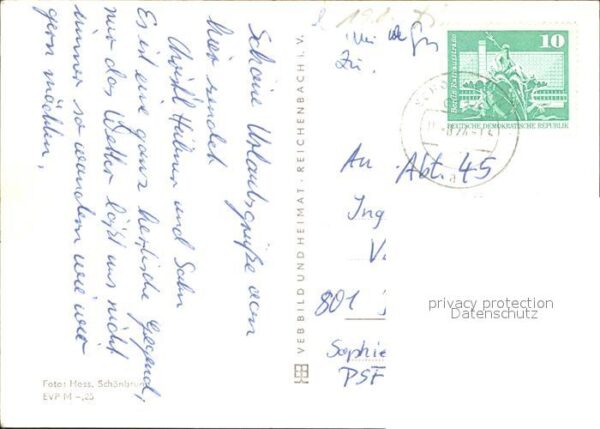 Schöne Urlaubsgrüße von
hier sendet
Christl Hübner und Sohn
Es ist eine ganz herrliche Gegend,
nur das Wetter läßt uns nicht
immer so wandern wie wir
gern möchten.
Foto: Hess, Schönbrunn
EVP M -,25
VEB BILD UND HEIMAT · REICHENBACH i. V.
10
Berlin, Rathausstraße
DEUTSCHE DEMOKRATISCHE REPUBLIK
An Abt. 45
Ing
V
801
Sophie
PSF
privacy protection
Datenschutz